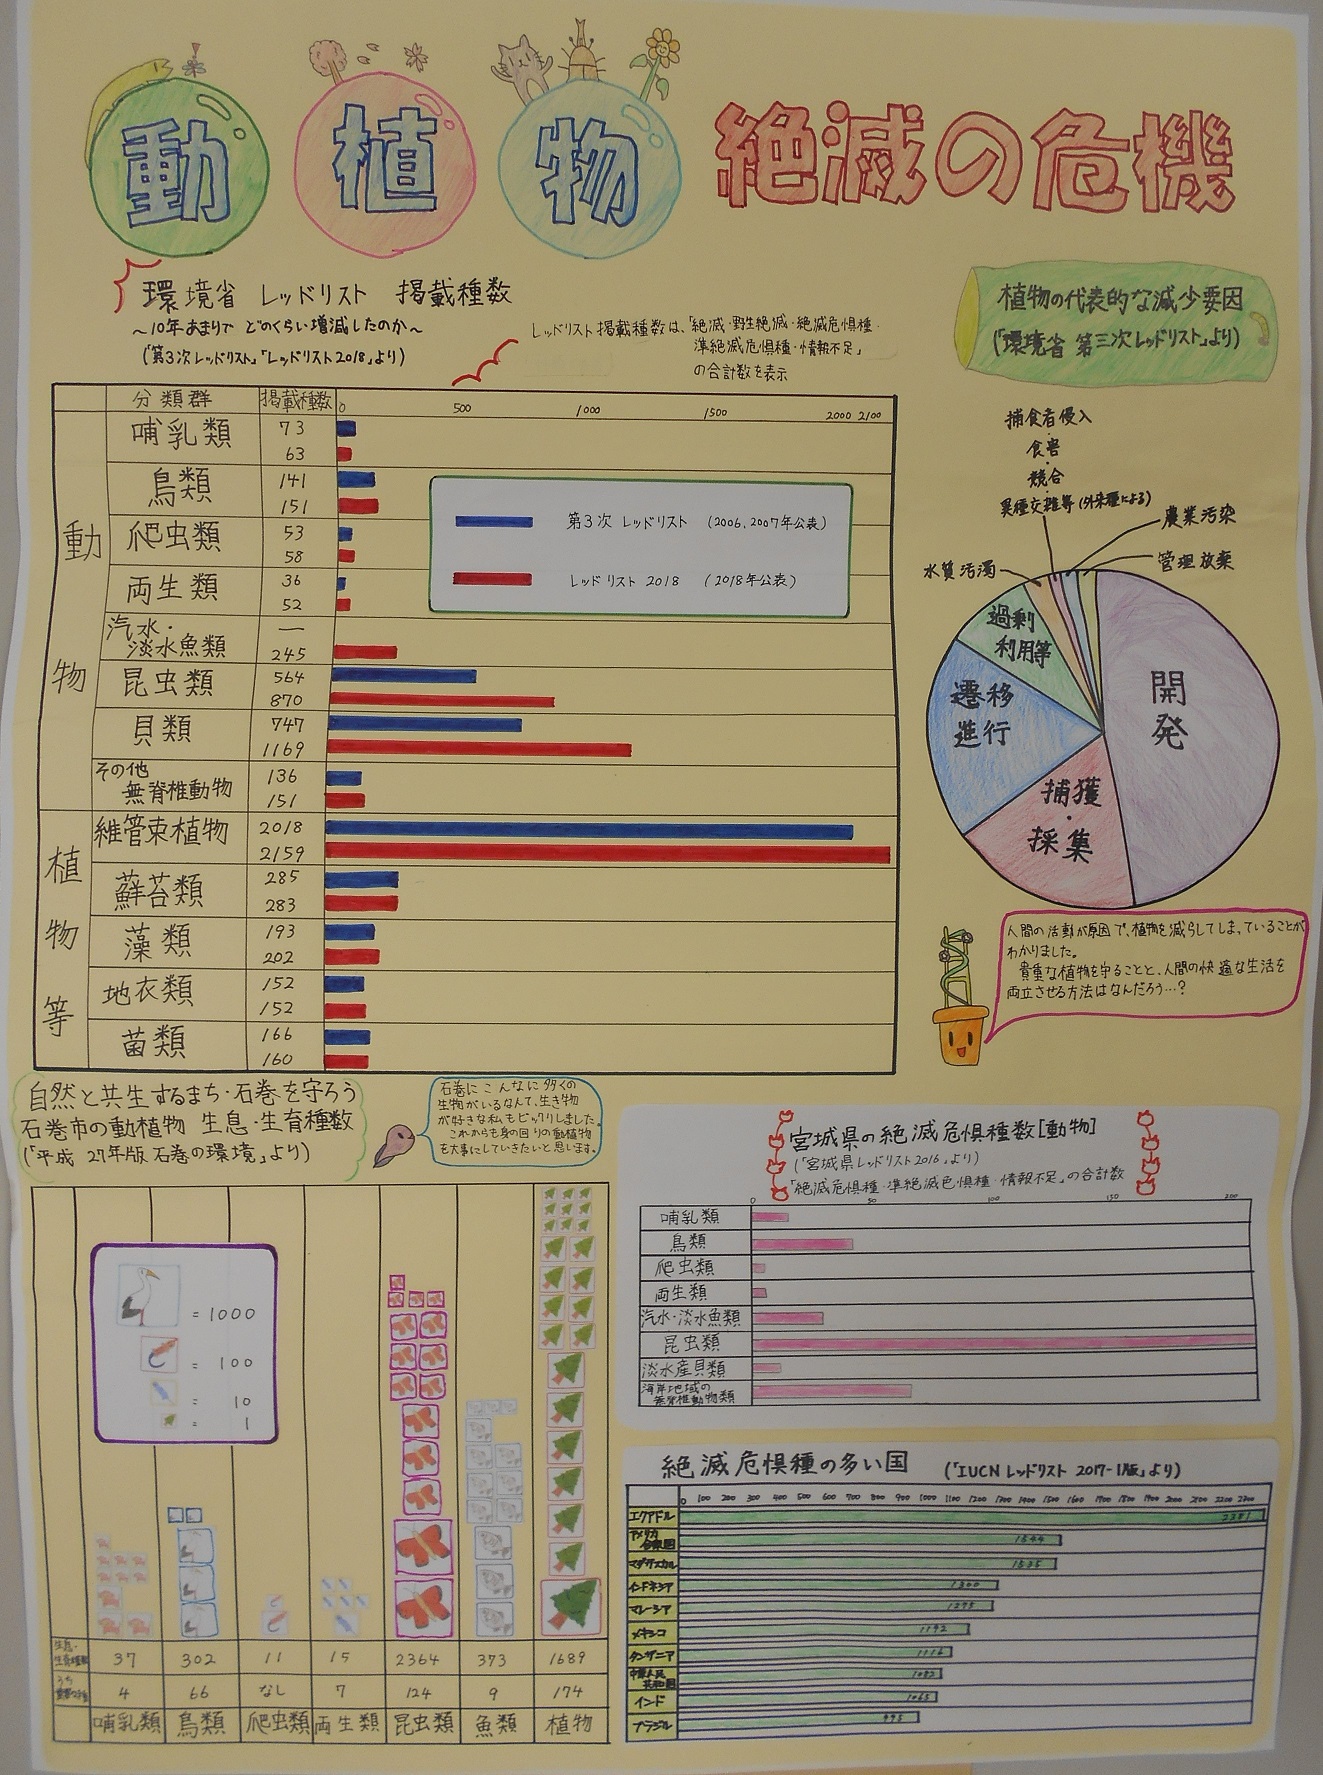 動植物 絶滅の危機
環境省 レッドリスト 掲載種数
～10年あまりで どのくらい増減したのか～
(「第3次レッドリスト」「レッドリスト2018」より)
レッドリスト掲載種数は、「絶滅・野生絶滅・絶滅危惧種・
準絶滅危惧種・情報不足」
の合計数を表示
分類群 掲載種数 0 500 1000 1500 2000 2100
動物
哺乳類 73
63
鳥類 141
151
爬虫類 53
58
両生類 36
52
汽水・ —
淡水魚類 245
昆虫類 564
870
貝類 747
1169
その他 136
無脊椎動物 151
植物等
維管束植物 2018
2159
蘚苔類 285
283
藻類 193
202
地衣類 152
152
菌類 166
160
第3次 レッドリスト (2006、2007年公表)
レッドリスト 2018 (2018年公表)
植物の代表的な減少要因
(「環境省 第三次レッドリスト」より)
捕食者侵入
食害
競合
異種交雑等(外来種による)
農業汚染
管理放棄
水質汚濁
過剰
利用等
遷移
進行
捕獲
・
採集
開
発
人間の活動が原因で、植物を減らしてしまっていることが
わかりました。
貴重な植物を守ることと、人間の快適な生活を
両立させる方法はなんだろう…?
自然と共生するまち・石巻を守ろう
石巻市の動植物 生息・生育種数
(「平成 27年版 石巻の環境」より)
石巻にこんなに多くの
生物がいるなんて、生き物
が好きな私もビックリしました。
これからも身の回りの動植物
を大事にしていきたいと思います。
= 1000
= 100
= 10
= 1
生息・
生育種数 37 302 11 15 2364 373 1689
うち
4 66 なし 7 124 9 174
哺乳類 鳥類 爬虫類 両生類 昆虫類 魚類 植物
宮城県の絶滅危惧種数[動物]
(「宮城県レッドリスト2016」より)
「絶滅危惧種・準絶滅危惧種・情報不足」の合計数
0 50 100 150 200
哺乳類
鳥類
爬虫類
両生類
汽水・淡水魚類
昆虫類
淡水産貝類
海岸地域の
無脊椎動物類
絶滅危惧種の多い国 (「IUCNレッドリスト 2017-1版」より)
0 100 200 300 400 500 600 700 800 900 1000 1100 1200 1300 1400 1500 1600 1700 1800 1900 2000 2100 2200 2300
エクアドル
アメリカ
合衆国 1544
マダガスカル 1535
インドネシア 1300
マレーシア 1295
メキシコ 1192
タンザニア 1116
中華人民
共和国 1082
インド 1065
ブラジル 995